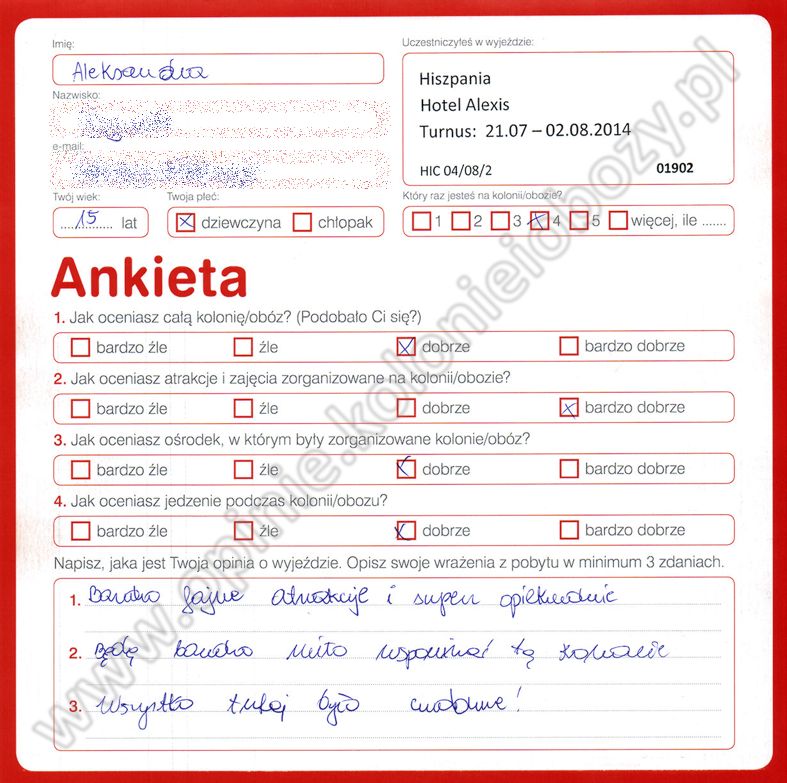 Imię:
Aleksandra
Nazwisko:
e-mail:
Twój wiek:
15 lat
Twoja płeć:
dziewczyna chłopak
Uczestniczyłeś w wyjeździe:
Hiszpania
Hotel Alexis
Turnus: 21.07 – 02.08.2014
HIC 04/08/2 01902
Który raz jesteś na kolonii/obozie?
1 2 3 4 5 więcej, ile .......
Ankieta
1. Jak oceniasz całą kolonię/obóz? (Podobało Ci się?)
bardzo źle źle dobrze bardzo dobrze
2. Jak oceniasz atrakcje i zajęcia zorganizowane na kolonii/obozie?
bardzo źle źle dobrze bardzo dobrze
3. Jak oceniasz ośrodek, w którym były zorganizowane kolonie/obóz?
bardzo źle źle dobrze bardzo dobrze
4. Jak oceniasz jedzenie podczas kolonii/obozu?
bardzo źle źle dobrze bardzo dobrze
Napisz, jaka jest Twoja opinia o wyjeździe. Opisz swoje wrażenia z pobytu w minimum 3 zdaniach.
1. Bardzo fajne atrakcje i super opiekunowie
2. Będę bardzo miło wspominać tą kolonie
3. Wszystko tutaj było cudowne!
www.opinie.kolonieiobozy.pl